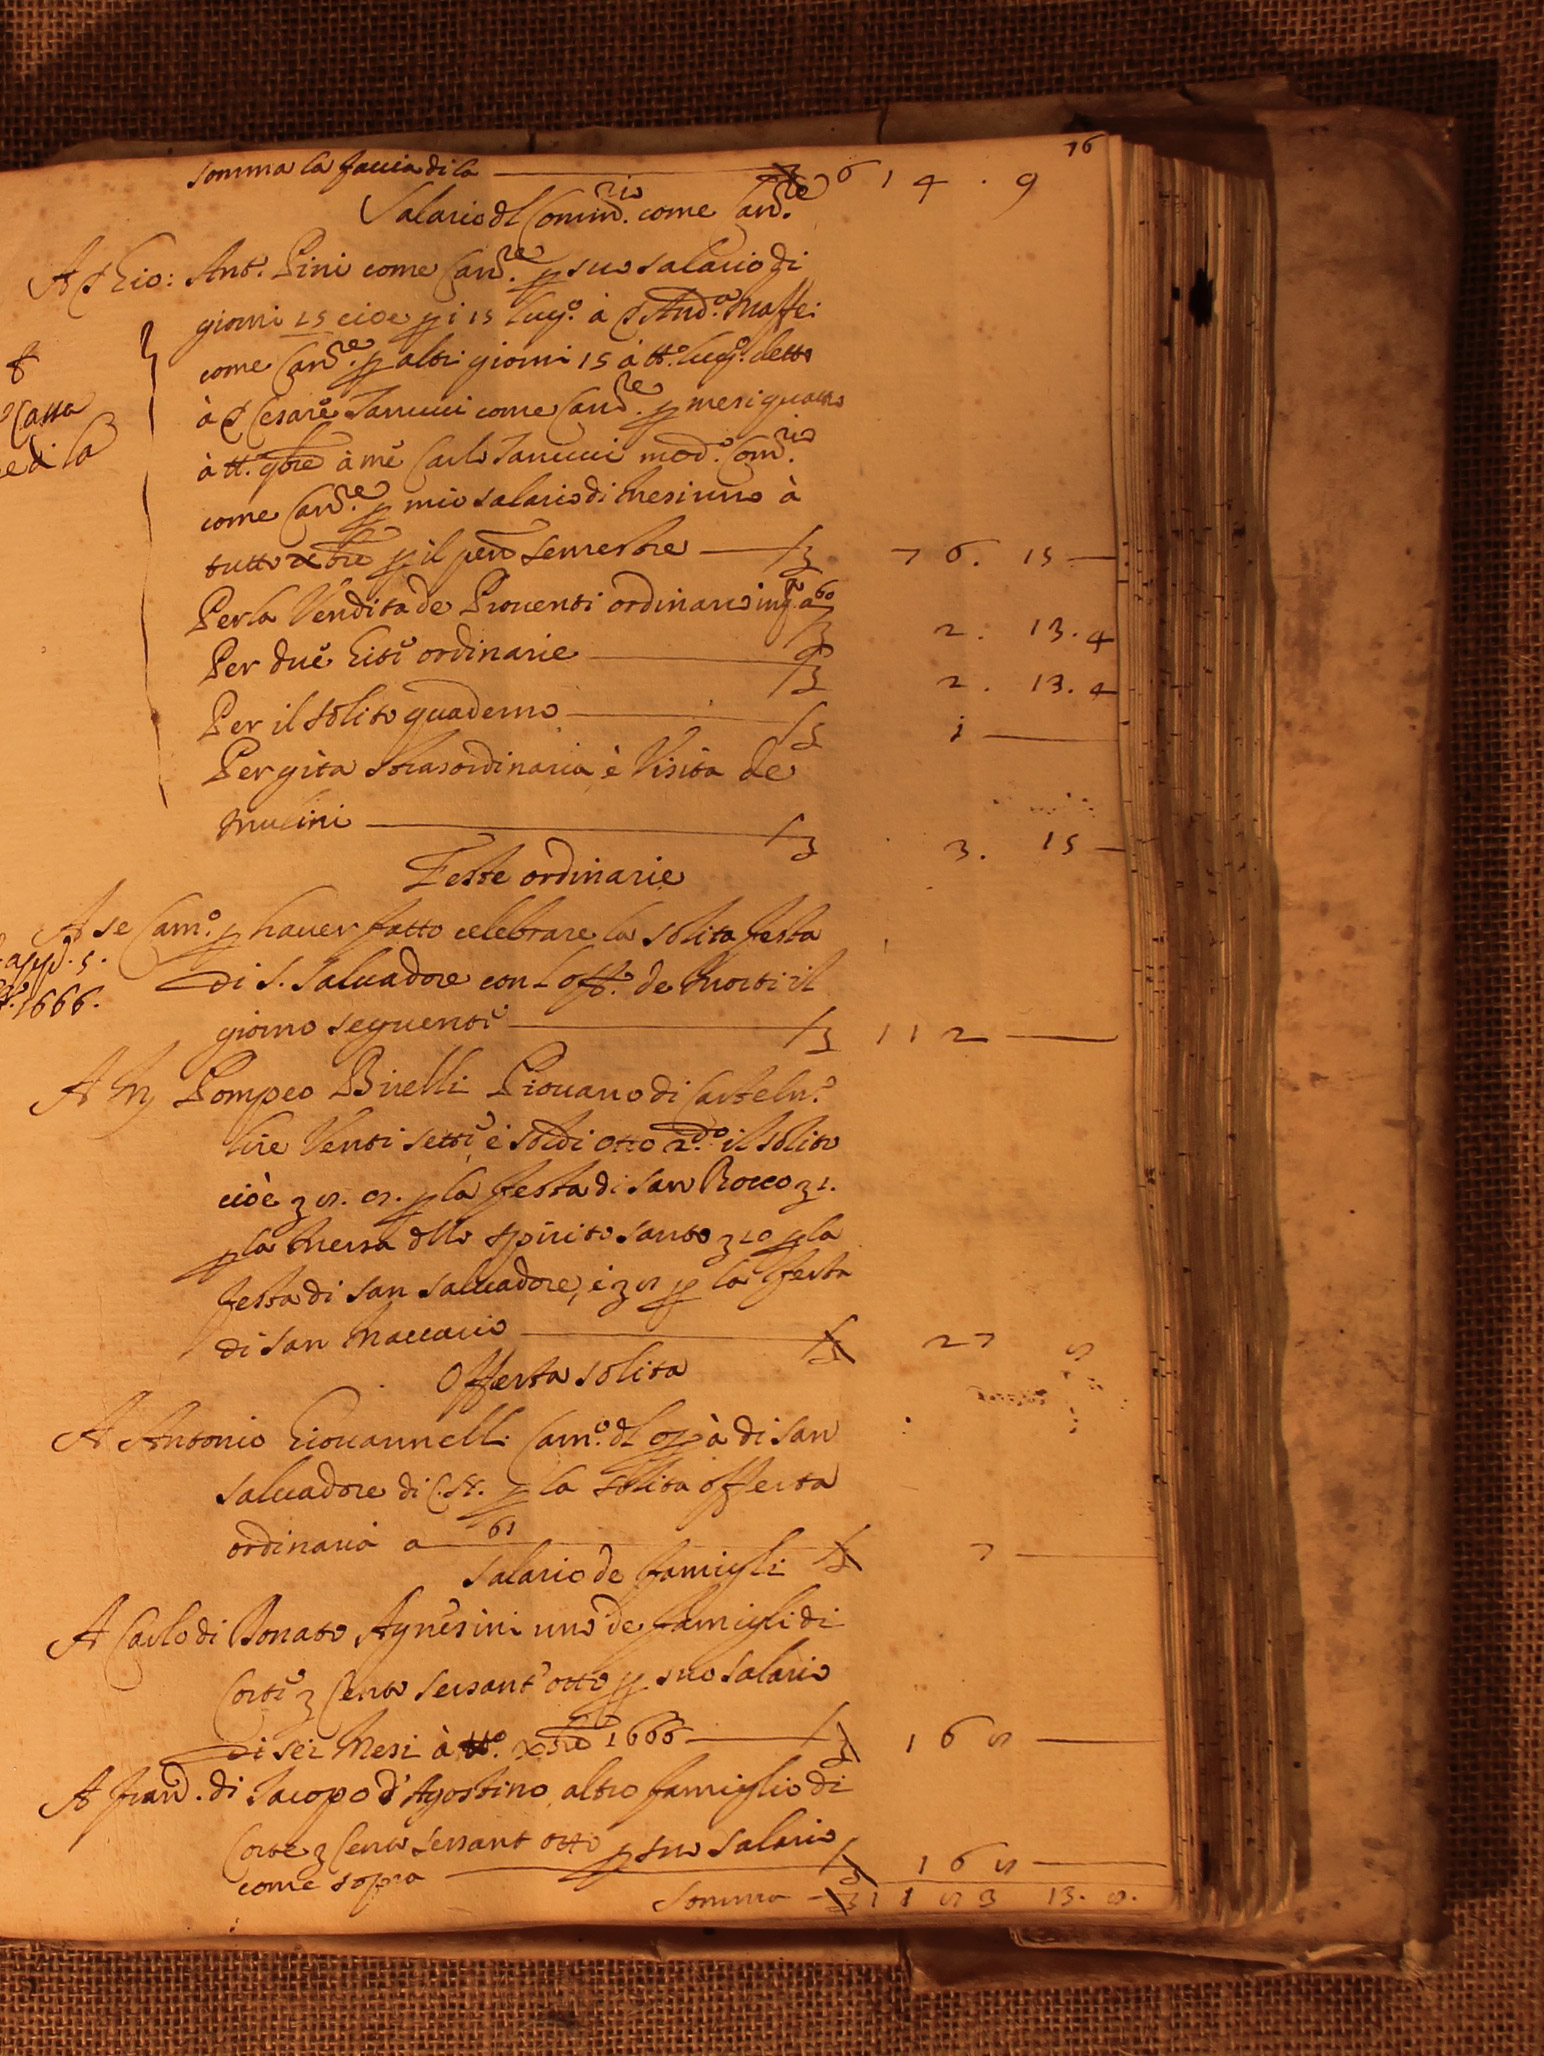 76
somma la faccia di la — 614 . 9
Salario dl Comm.rio come Can.re
A Gio: Ant.o Pini come Can.re p suo salario di
giorni 15 cioe p i 15 lug.o à And.a Maffei
come Can.re p altri giorni 15 à tt.o lug.o detto
à Cesare Janucci come Can.re p mesi quattro
à tt.o 9bre à me Carlo Janucci mod.o Com.rio
come Can.re p mio salario di Mesi uno à
tutto xbre p il pnte semestre — 76. 15 —
Per la Vendita de Prouenti ordinario a 60
2. 13. 4
Per due Gite ordinarie — 2. 13. 4
Per il solito quaderno — 1 —
Per gita strasordinaria, è Visita de
Mulini — 3. 15 —
Feste ordinarie
A se Cam.o p hauer fatto celebrare la solita festa
app. 5.
di S. Saluadore con l off.o de Morti il
1666.
giorno seguente — 112 —
A Pompeo Birelli Piouano di Casteln.o
lire Venti sette, e soldi otto 2.do il solito
cioè 8. 8. p la festa di san Rocco 1.
p la Messa dllo spirito santo 10 p la
festa di san saluadore, e 8 p la festa
di san Maccario — 27 8
Offerta solita
A Antonio Giouannelli Cam.o dl opà di san
saluadore di C.N. p la solita offerta
ordinaria a 61 — 7 —
Salario de famigli
A Carlo di Donato Agnesini uno de famigli di
Corte Cento sessant' otto p suo salario
di sei Mesi à tt.o xbre 1666 — 168 —
A Fran.o di Jacopo d'Agostino altro famiglio di
Corte Cento sessant otto p suo salario
come sopra — 168 —
Somma — 1183 13. 8.